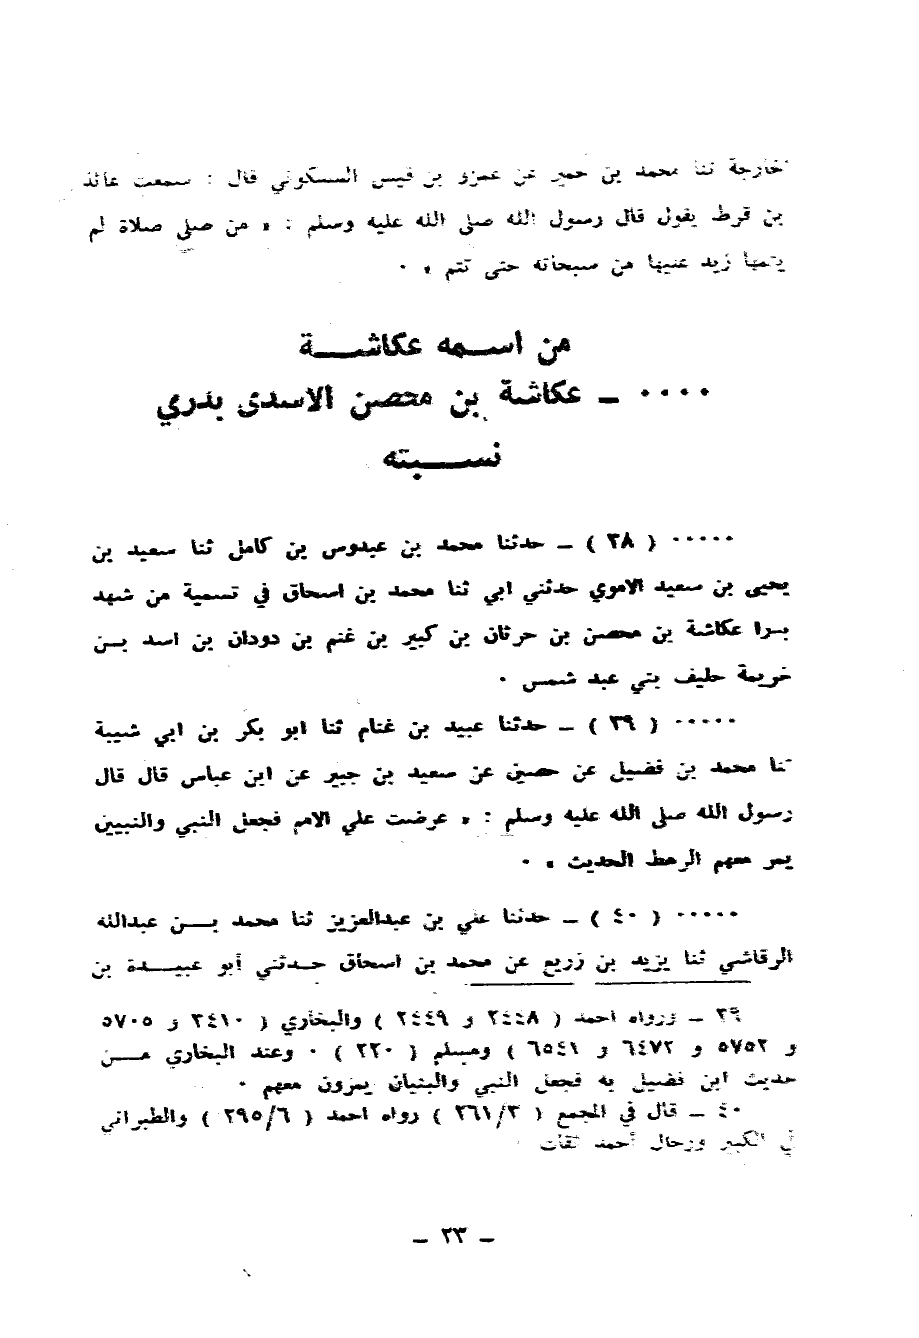 خارجة ثنا محمد بن حمير عن عمرو بن قيس السكوني قال : سمعت عائذ
بن قرط يقول قال رسول الله صلى الله عليه وسلم : « من صلى صلاة لم
يتمها زيد عليها من سبحاته حتى تتم » ٠
من اسمه عكاشة
٠٠٠٠ ـ عكاشة بن محصن الاسدى بدري
نسبته
٠٠٠٠٠ ( ٣٨ ) ـ حدثنا محمد بن عبدوس بن كامل ثنا سعيد بن
يحيى بن سعيد الاموي حدثني ابي ثنا محمد بن اسحاق في تسمية من شهد
بدرا عكاشة بن محصن بن حرثان بن كبير بن غنم بن دودان بن اسد بن
خزيمة حليف بني عبد شمس ٠
٠٠٠٠٠ ( ٣٩ ) ـ حدثنا عبيد بن غنام ثنا ابو بكر بن ابي شيبة
ثنا محمد بن فضيل عن حصين عن سعيد بن جبير عن ابن عباس قال قال
رسول الله صلى الله عليه وسلم : « عرضت علي الامم فجعل النبي والنبيين
يمر معهم الرهط الحديث » ٠
٠٠٠٠٠ ( ٤٠ ) ـ حدثنا علي بن عبدالعزيز ثنا محمد بن عبدالله
الرقاشي ثنا يزيد بن زريع عن محمد بن اسحاق حدثني أبو عبيدة بن
٣٩ ـ ورواه احمد ( ٢٤٤٨ و ٢٤٤٩ ) والبخاري ( ٣٤١٠ و ٥٧٠٥
و ٥٧٥٢ و ٦٤٧٢ و ٦٥٤١ ) ومسلم ( ٢٢٠ ) ٠ وعند البخاري من
حديث ابن فضيل به فجعل النبي والبنيان يمرون معهم ٠
٤٠ ـ قال في المجمع ( ٢٦١/٣ ) رواه احمد ( ٢٩٥/٦ ) والطبراني
في الكبير ورجال أحمد ثقات
ـ ٢٣ ـ